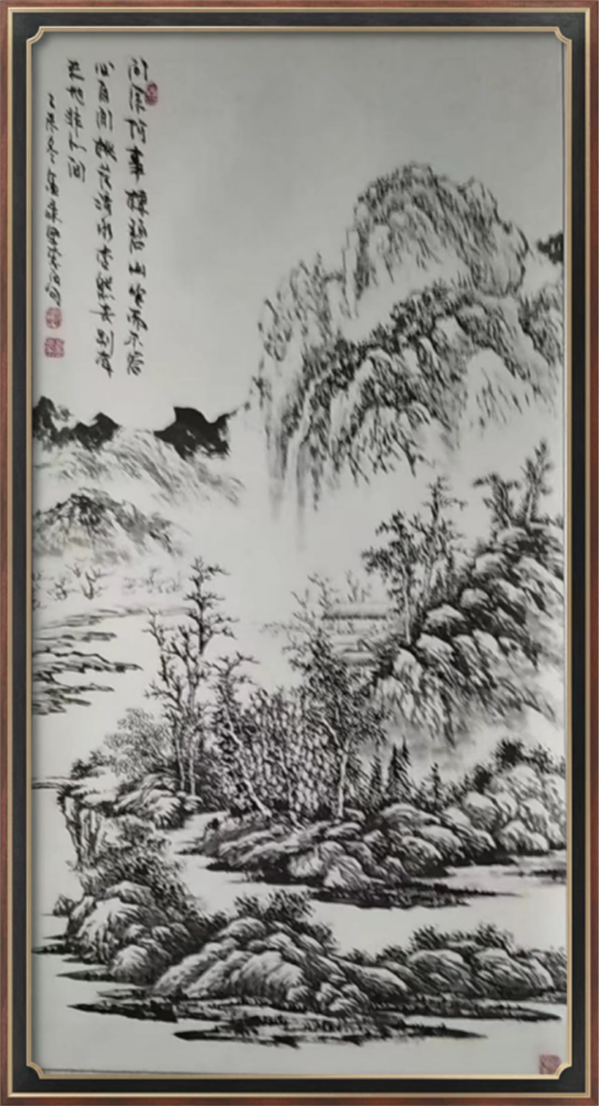 问余何事棲碧山笑而不答
心自闲桃花流水杳然去别有
天地非人间
乙未冬